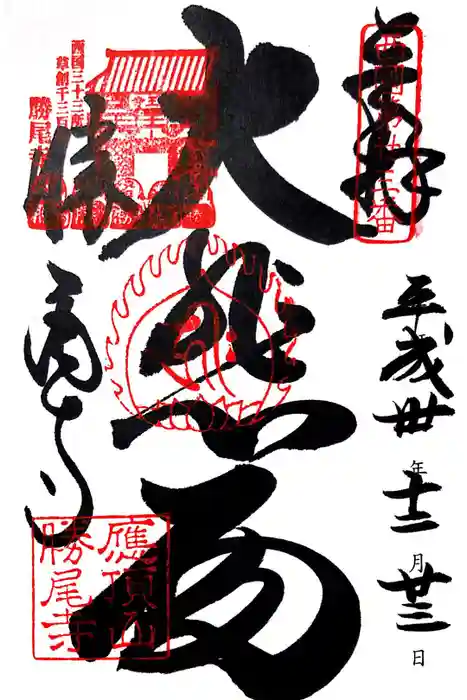 奉拝
西國第廿三番
平成卅年十二月廿三日
大悲
西国三十三所
草創千三百年
勝尾寺
勝尾寺
應頂山
勝尾寺